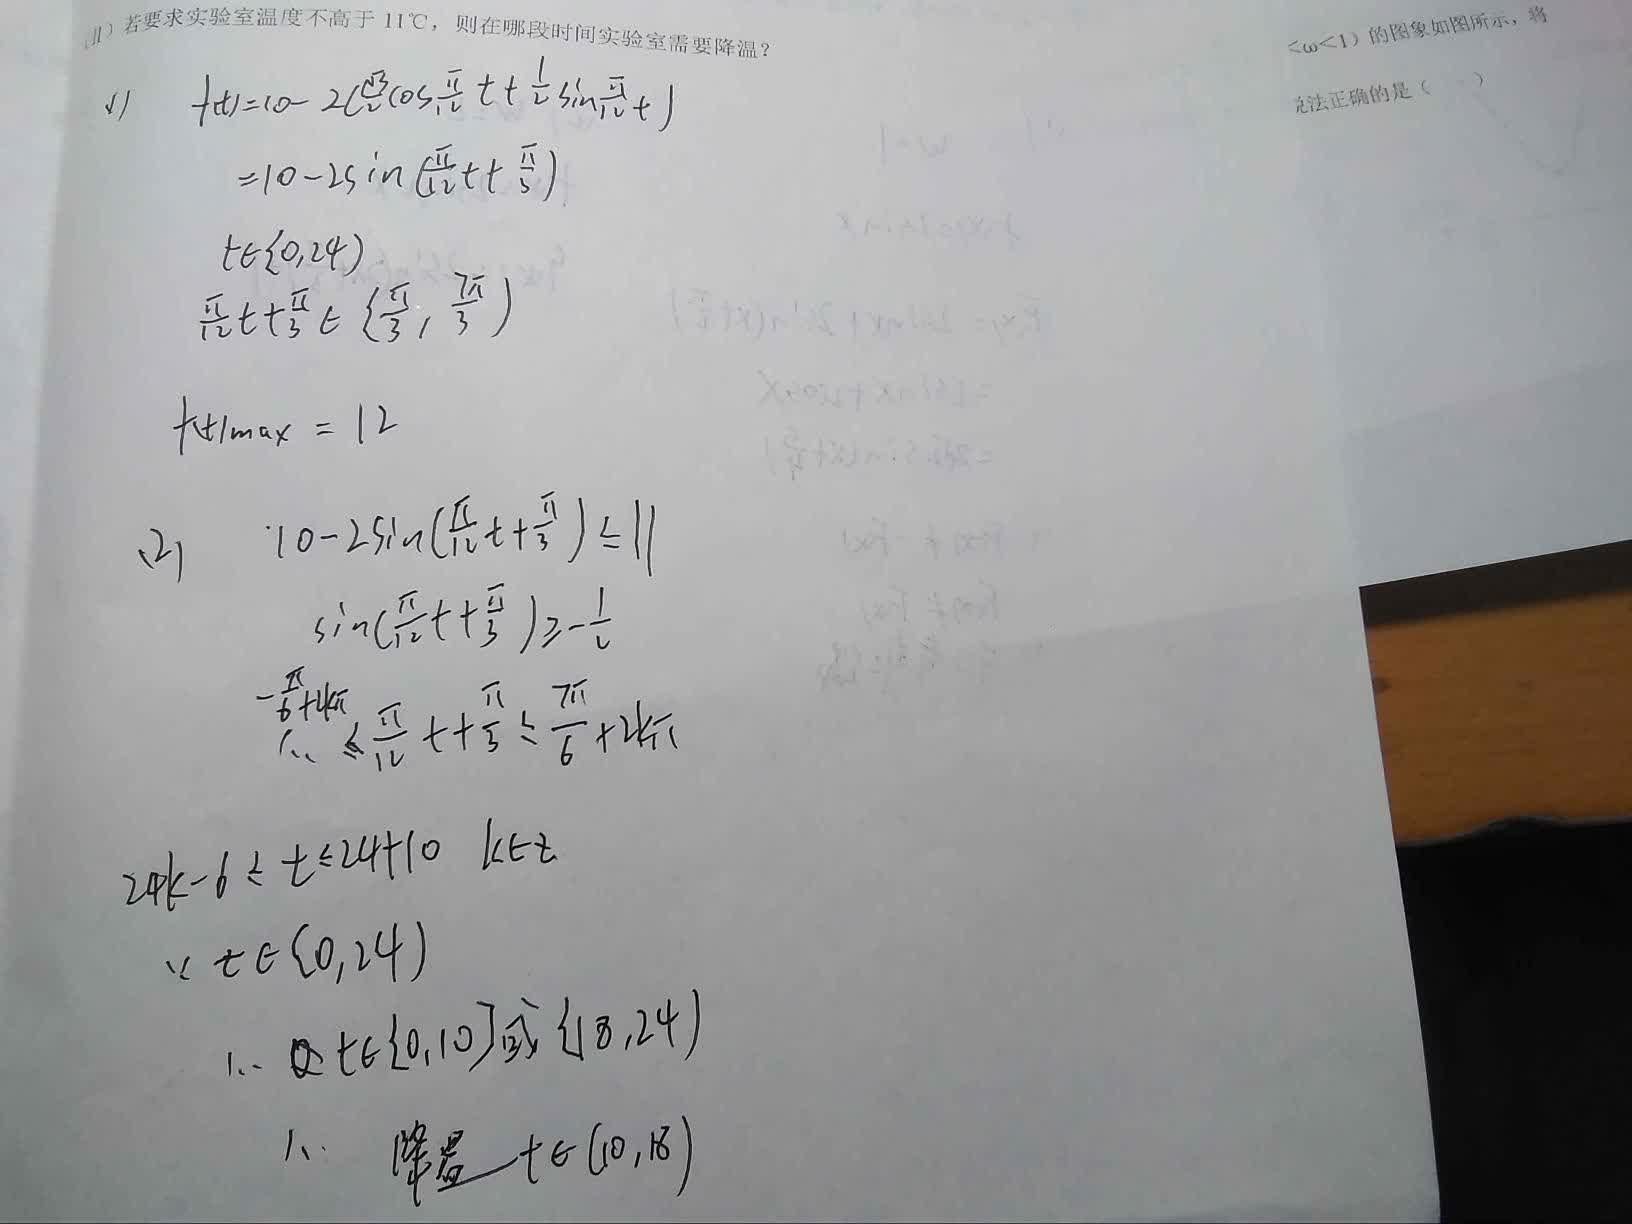 (II) 若要求实验室温度不高于 11℃，则在哪段时间实验室需要降温？
≤ω<1）的图象如图所示，将
说法正确的是（ ）
(1) f(t)=10-2(√3/2 cos π/12 t+1/2 sin π/12 t)
=10-2sin(π/12 t+π/3)
t∈[0,24)
π/12 t+π/3∈[π/3, 7π/3)
f(t)max=12
(2) 10-2sin(π/12 t+π/3)≤11
sin(π/12 t+π/3)≥-1/2
∴ -π/6+2kπ≤π/12 t+π/3≤7π/6+2kπ
24k-6≤t≤24+10 k∈z
∵ t∈[0,24)
∴ t∈[0,10]或[18,24)
∴ 降温 t∈(10,18)